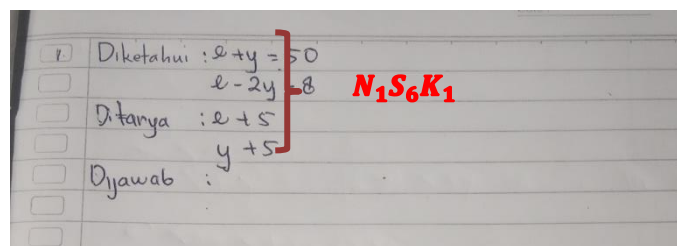 1. Diketahui : l + y = 50
l - 2y = 8
N₁S₆K₁
Ditanya : l + 5
y + 5
Dijawab :